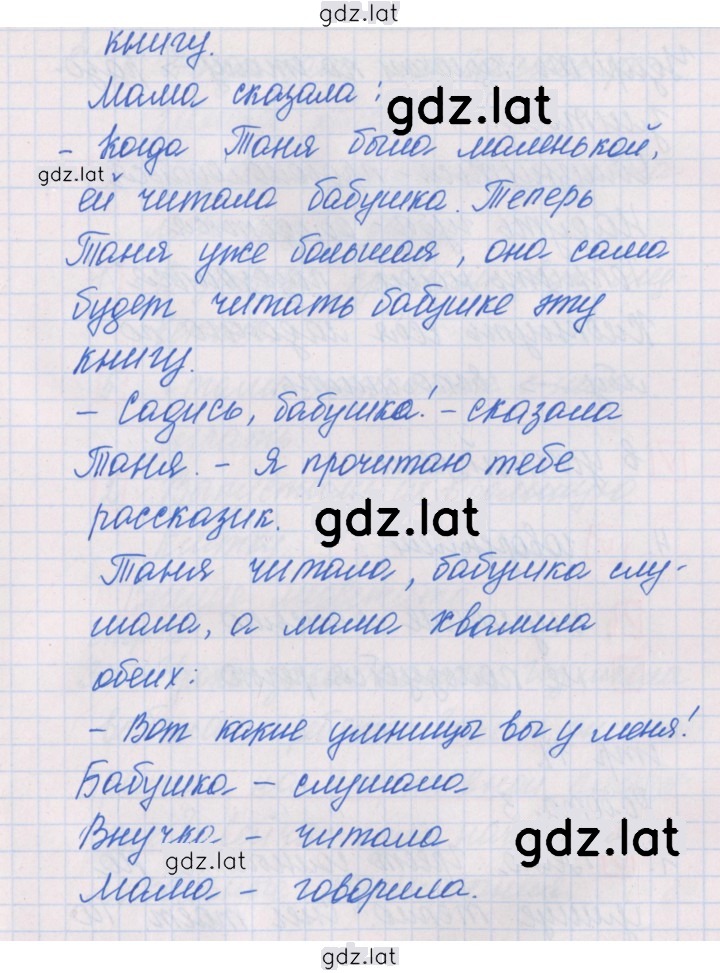 gdz.lat
книгу.
Мама сказала:
gdz.lat
- Когда Таня была маленькой,
gdz.lat
ей читала бабушка. Теперь
Таня уже большая, она сама
будет читать бабушке эту
книгу.
- Садись, бабушка! - сказала
Таня. - Я прочитаю тебе
рассказик.
gdz.lat
Таня читала, бабушка слу-
шала, а мама хвалила
обеих:
- Вот какие умницы вы у меня!
Бабушка - слушала
Внучка - читала
gdz.lat
gdz.lat
Мама - говорила.
gdz.lat